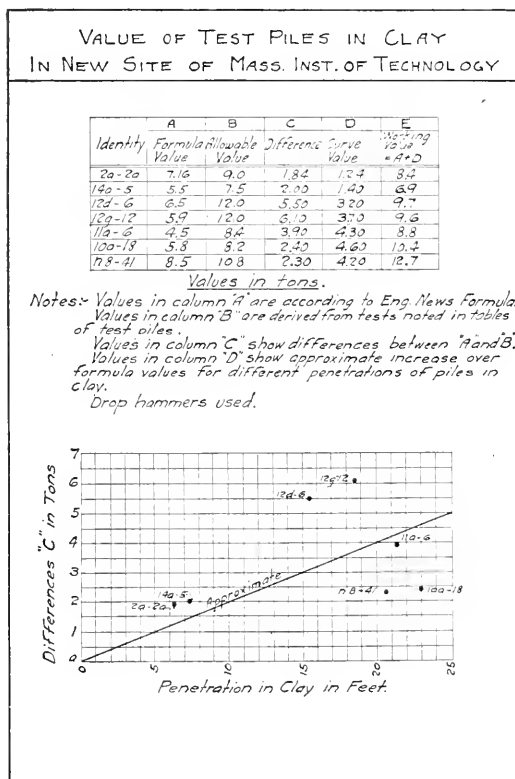 VALUE OF TEST PILES IN CLAY
IN NEW SITE OF MASS. INST. OF TECHNOLOGY
A B C D E
Identity Formula Value Allowable Value Difference Curve Value Working Value = A+D
2a-2a 7.16 9.0 1.84 1.24 8.4
14a-5 5.5 7.5 2.00 1.40 6.9
12d-6 6.5 12.0 5.50 3.20 9.7
12g-12 5.9 12.0 6.10 3.70 9.6
11a-6 4.5 8.4 3.90 4.30 8.8
10a-18 5.8 8.2 2.40 4.60 10.4
n8-41 8.5 10.8 2.30 4.20 12.7
Values in tons.
Notes:- Values in column "A" are according to Eng. News Formula.
Values in column "B" are derived from tests noted in tables
of test piles.
Values in column "C" show differences between "A" and "B".
Values in column "D" show approximate increase over
formula values for different penetrations of piles in
clay.
Drop hammers used.
Differences "C" in Tons
7
6
5
4
3
2
1
0
12g-12
12d-6
11a-6
14a-5
2a-2a
n8-41
10a-18
Approximate
0 5 10 15 20 25
Penetration in Clay in Feet.